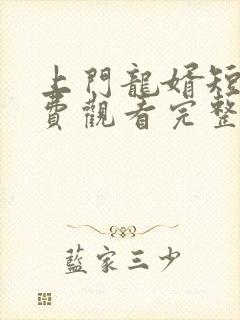 上門龍婿短
費觀看完整
藍家三少